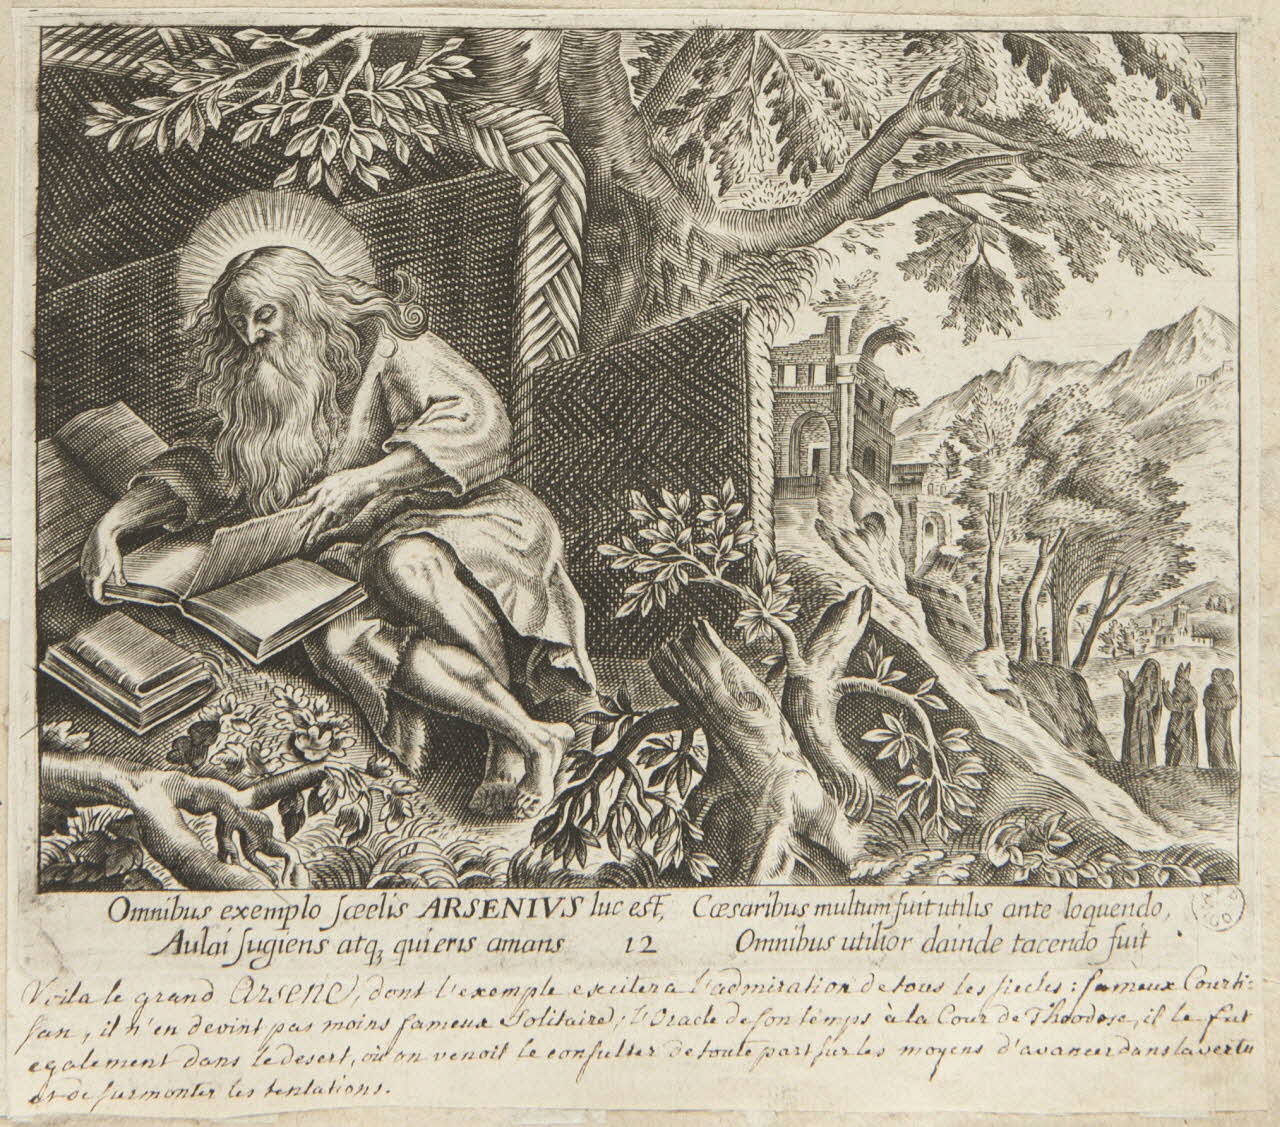 Omnibus exemplo sæclis ARSENIVS luc est, Cæsaribus multum fuit utilis ante loquendo,
Aulai fugiens atq, quieris amans 12 Omnibus utilior dainde tacendo fuit
Voila le grand Arsene, dont l'exemple excitera l'admiration de tous les siecles : fameux Courti-
san, il n'en devint pas moins fameux Solitaire; l'Oracle de son temps à la Cour de Theodose, il le fut
egalement dans le desert, où on venoit le consulter de toute part sur les moyens d'avancer dans la vertu
et de surmonter les tentations.